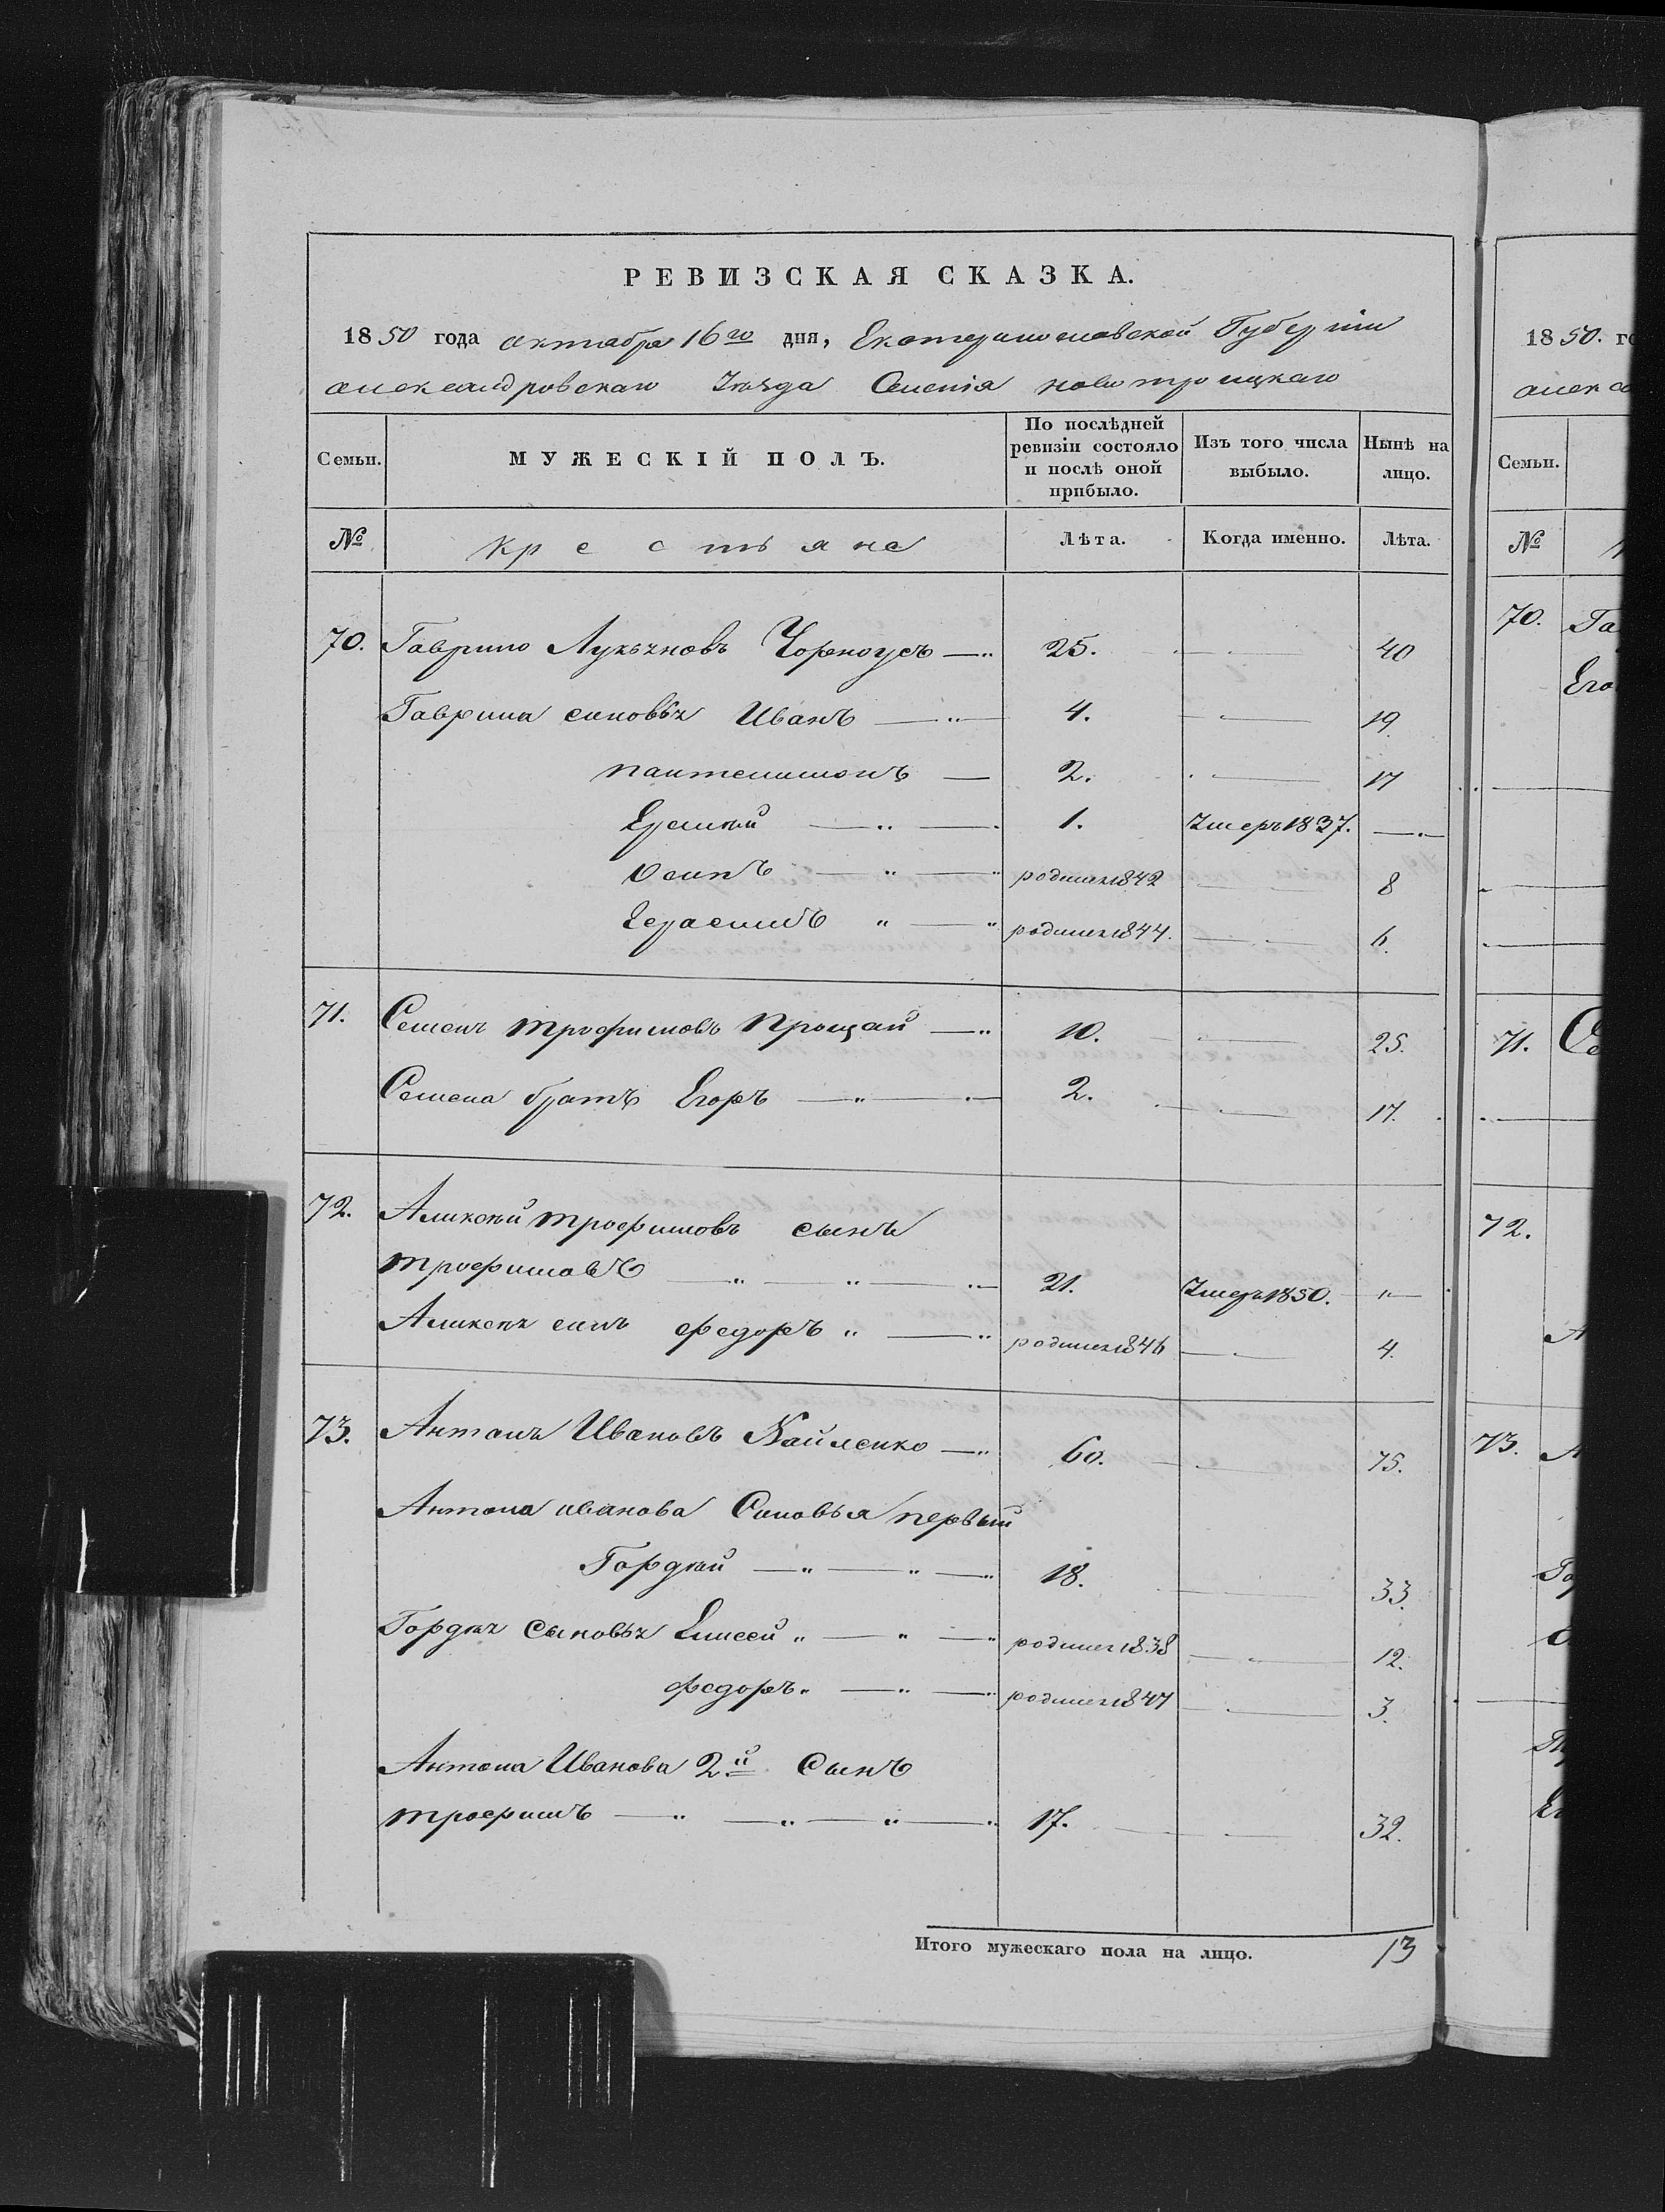 РЕВИЗСКАЯ СКАЗКА.
1850 года октября 16го дня, Екатеринославской Губернии
александровскаго Уѣзда Селенія новотроицкаго
Семьи. МУЖЕСКІЙ ПОЛЪ. По послѣдней ревизіи состояло и послѣ оной прибыло. Изъ того числа выбыло. Нынѣ на лицо.
№ крестьяне Лѣта. Когда именно. Лѣта.
70. Гаврило Лукьяновъ Чорноусъ 25. 40
Гаврила сыновья Иванъ 4. 19
пантелимонъ 2. 17
Еремѣй 1. Умеръ 1837.
Осипъ родился 1842 8
Герасимъ родился 1844. 6.
71. Семенъ трофимовъ прощай 10. 25.
Семена братъ Егоръ 2. 17.
72. Аликсѣй трофимовъ сынъ
трофимовъ 21. Умеръ 1850.
Аликсѣя сынъ федоръ родился 1846 4.
73. Антонъ Ивановъ 60. 75.
Антона иванова Сыновья первый
Гордѣй 18. 33.
Гордѣя Сыновья Елисей родился 1838 12.
федоръ родился 1847 3.
Антона Иванова 2й Сынъ
трофимъ 17. 32.
Итого мужескаго пола на лицо. 13
1850. го
алекса
Семьи.
№
70. Га
Его
71. Се
72.
А
73. А
Го